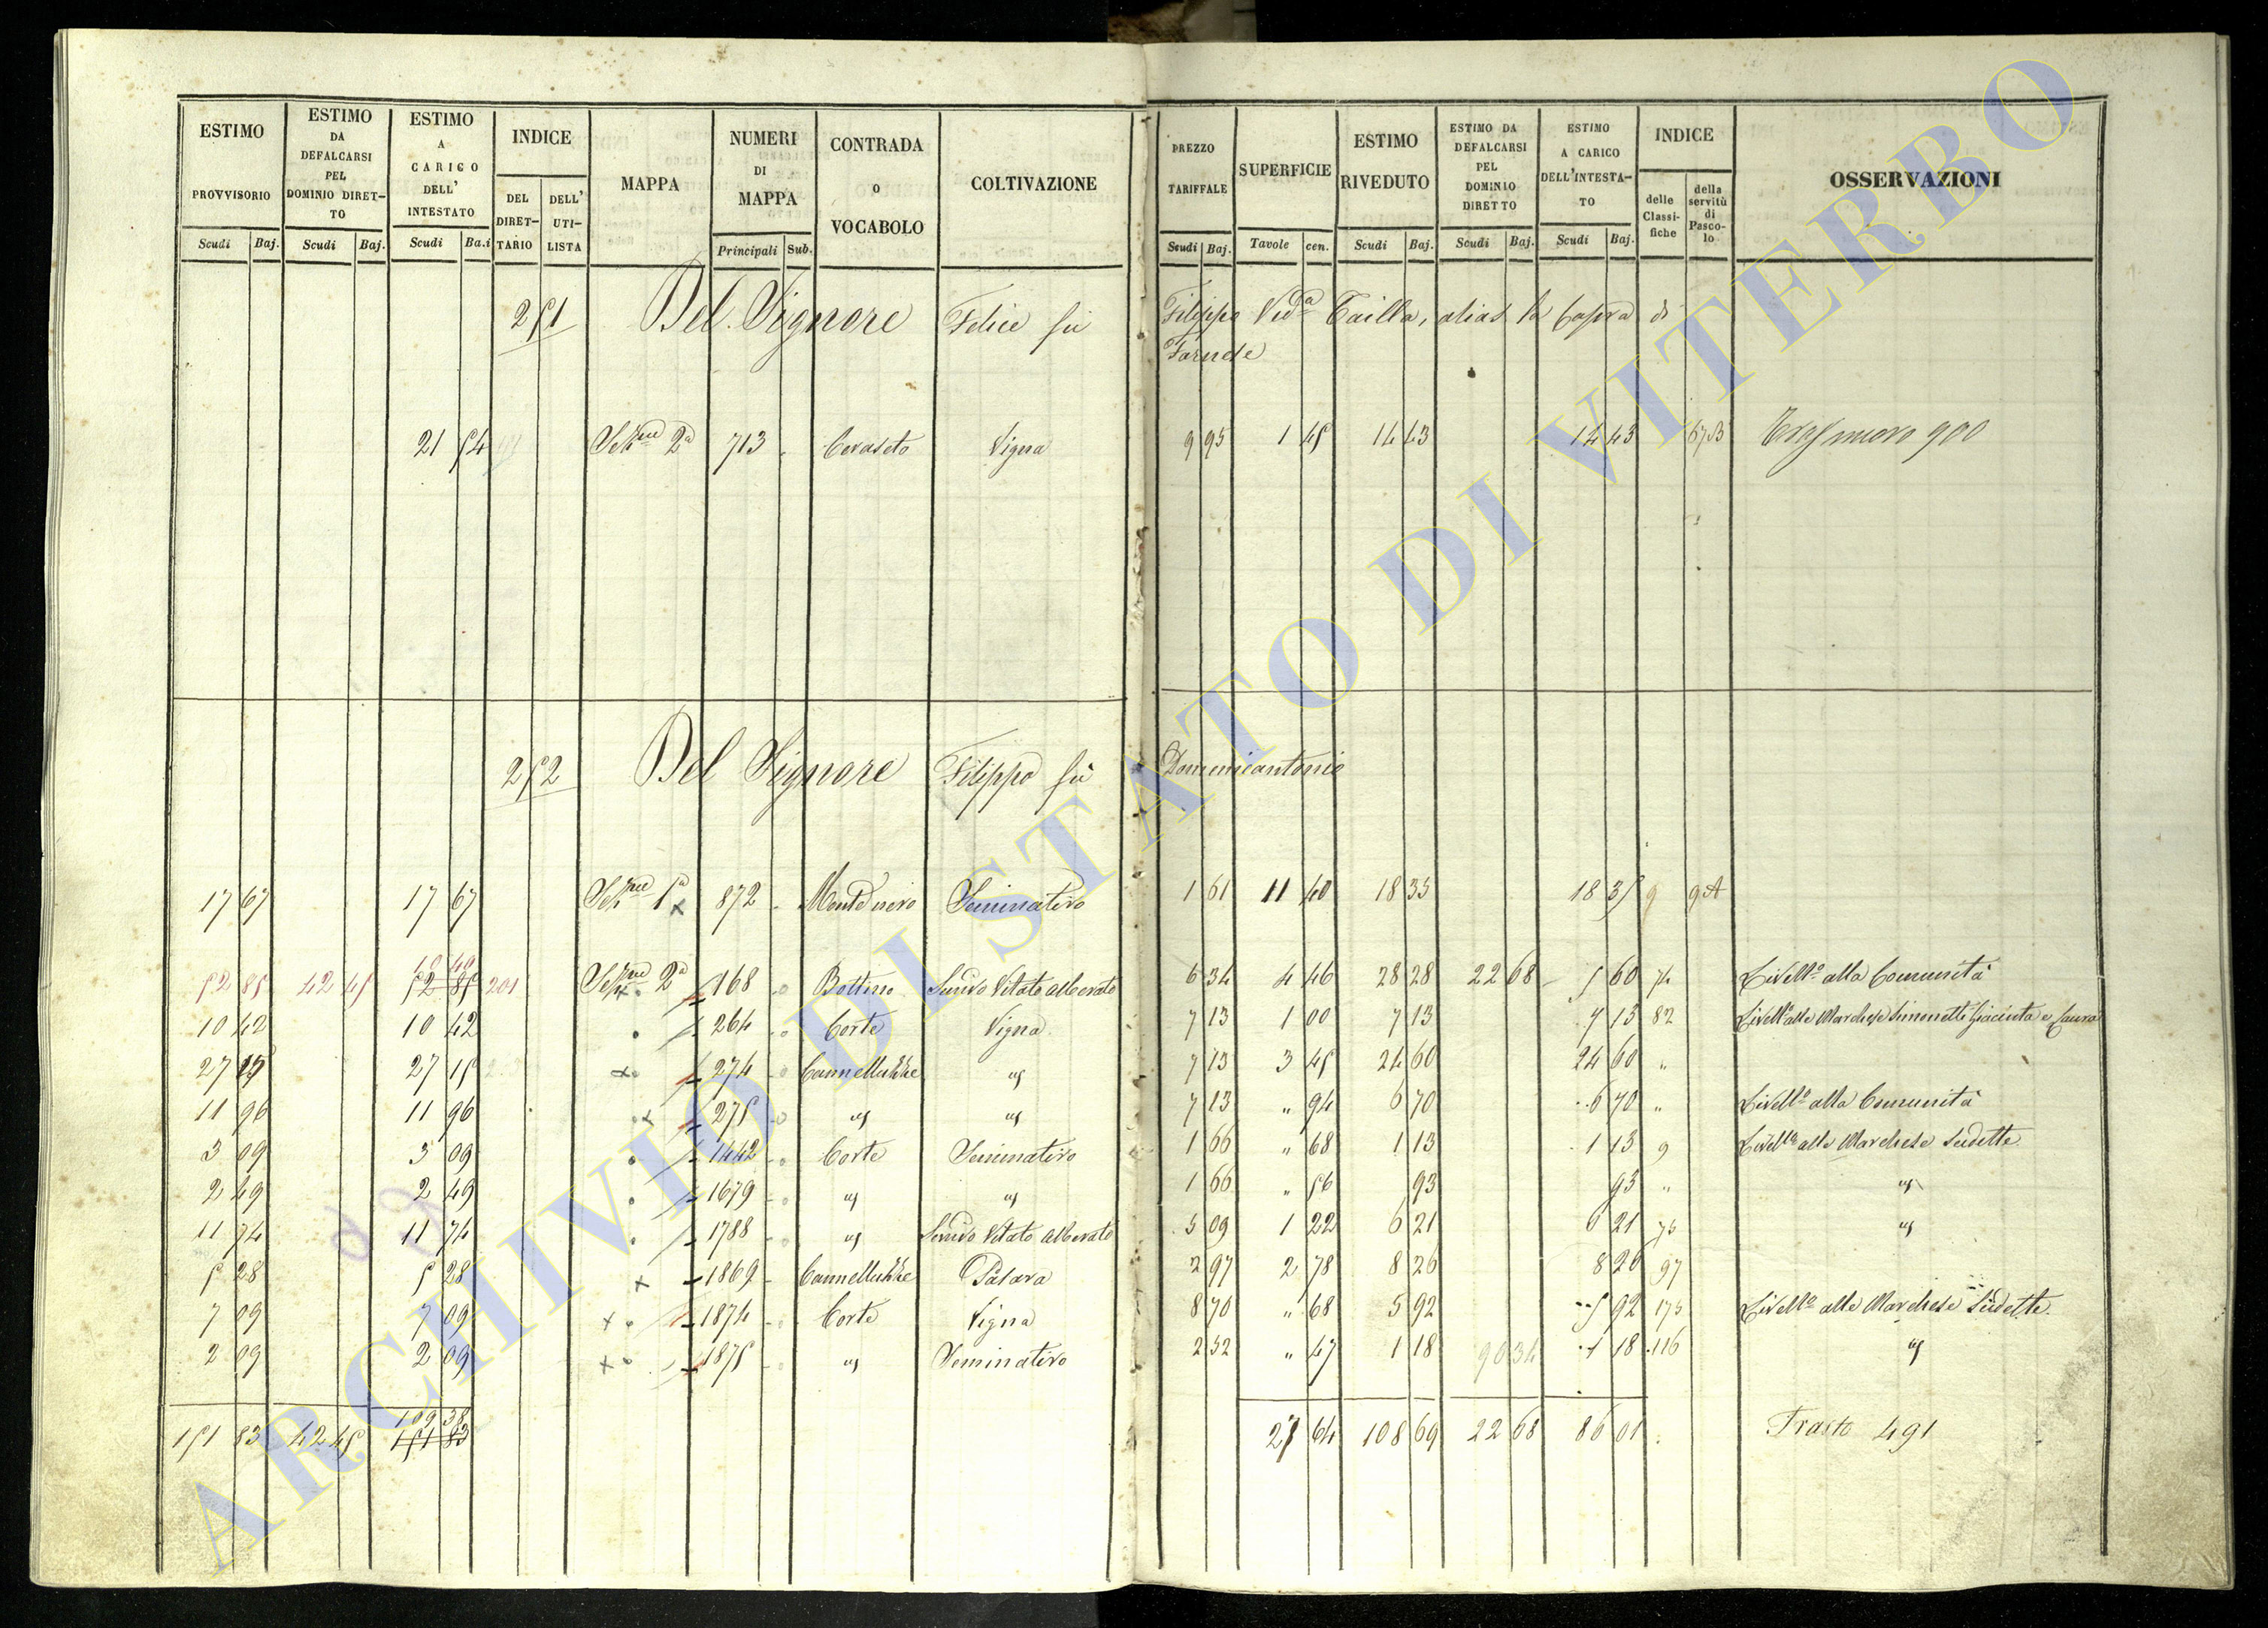 ESTIMO PROVVISORIO Scudi Baj.
ESTIMO DA DEFALCARSI PEL DOMINIO DIRET-TO Scudi Baj.
ESTIMO A CARICO DELL' INTESTATO Scudi Ba.i
INDICE DEL DIRET-TARIO DELL' UTI-LISTA
MAPPA
NUMERI DI MAPPA Principali Sub.
CONTRADA O VOCABOLO
COLTIVAZIONE
PREZZO TARIFFALE Scudi Baj.
SUPERFICIE Tavole cen.
ESTIMO RIVEDUTO Scudi Baj.
ESTIMO DA DEFALCARSI PEL DOMINIO DIRETTO Scudi Baj.
ESTIMO A CARICO DELL'INTESTA-TO Scudi Baj.
INDICE delle Classi-fiche della servitù di Pasco-lo
OSSERVAZIONI
251 Del Signore Felice fù Filippo Ved.a alias la di
Farnese
21 54 Sez.ne 2a 713 Ceraseto Vigna 9 95 1 45 14 43 14 43 900
252 Del Signore Filippo fù Domenicantonio
17 67 17 67 Sez.ne 1a x 872 Seminativo 1 61 11 40 18 35 18 35 9 9 A
52 85 42 45 52 85 201 Sez.ne 2a 168 Bottino Semivo Vitato alberato 6 34 4 46 28 28 22 68 5 60 74 Livell.o alla Comunità
10 42 10 42 264 Corte Vigna 7 13 1 00 7 13 7 13 82 Livell.o alle Marchese Simonetti Giacinta e Laura
27 15 27 15 x 274 Cannelluzze " 7 13 3 45 24 60 24 60 "
11 96 11 96 x 275 " " 7 13 " 94 6 70 6 70 " Livell.o alla Comunità
3 09 3 09 1442 Corte Seminativo 1 66 " 68 1 13 1 13 9 Livell.o alle Marchese sudette
2 49 2 49 1679 " " 1 66 " 56 93 93 " "
11 74 11 74 1788 " Semivo Vitato alberato 5 09 1 22 6 21 6 21 75 "
5 28 5 28 x 1869 Cannelluzze 2 97 2 78 8 26 8 26 97
7 09 7 09 x 1874 Corte Vigna 8 70 " 68 5 92 5 92 175 Livell.o alle Marchese sudette.
2 09 2 09 x 1875 " Seminativo 2 52 " 47 1 18 90 34 1 18 116 "
109 38
151 83 42 45 151 83 27 64 108 69 22 68 86 01 Trasto 491
ARCHIVIO DI STATO DI VITERBO